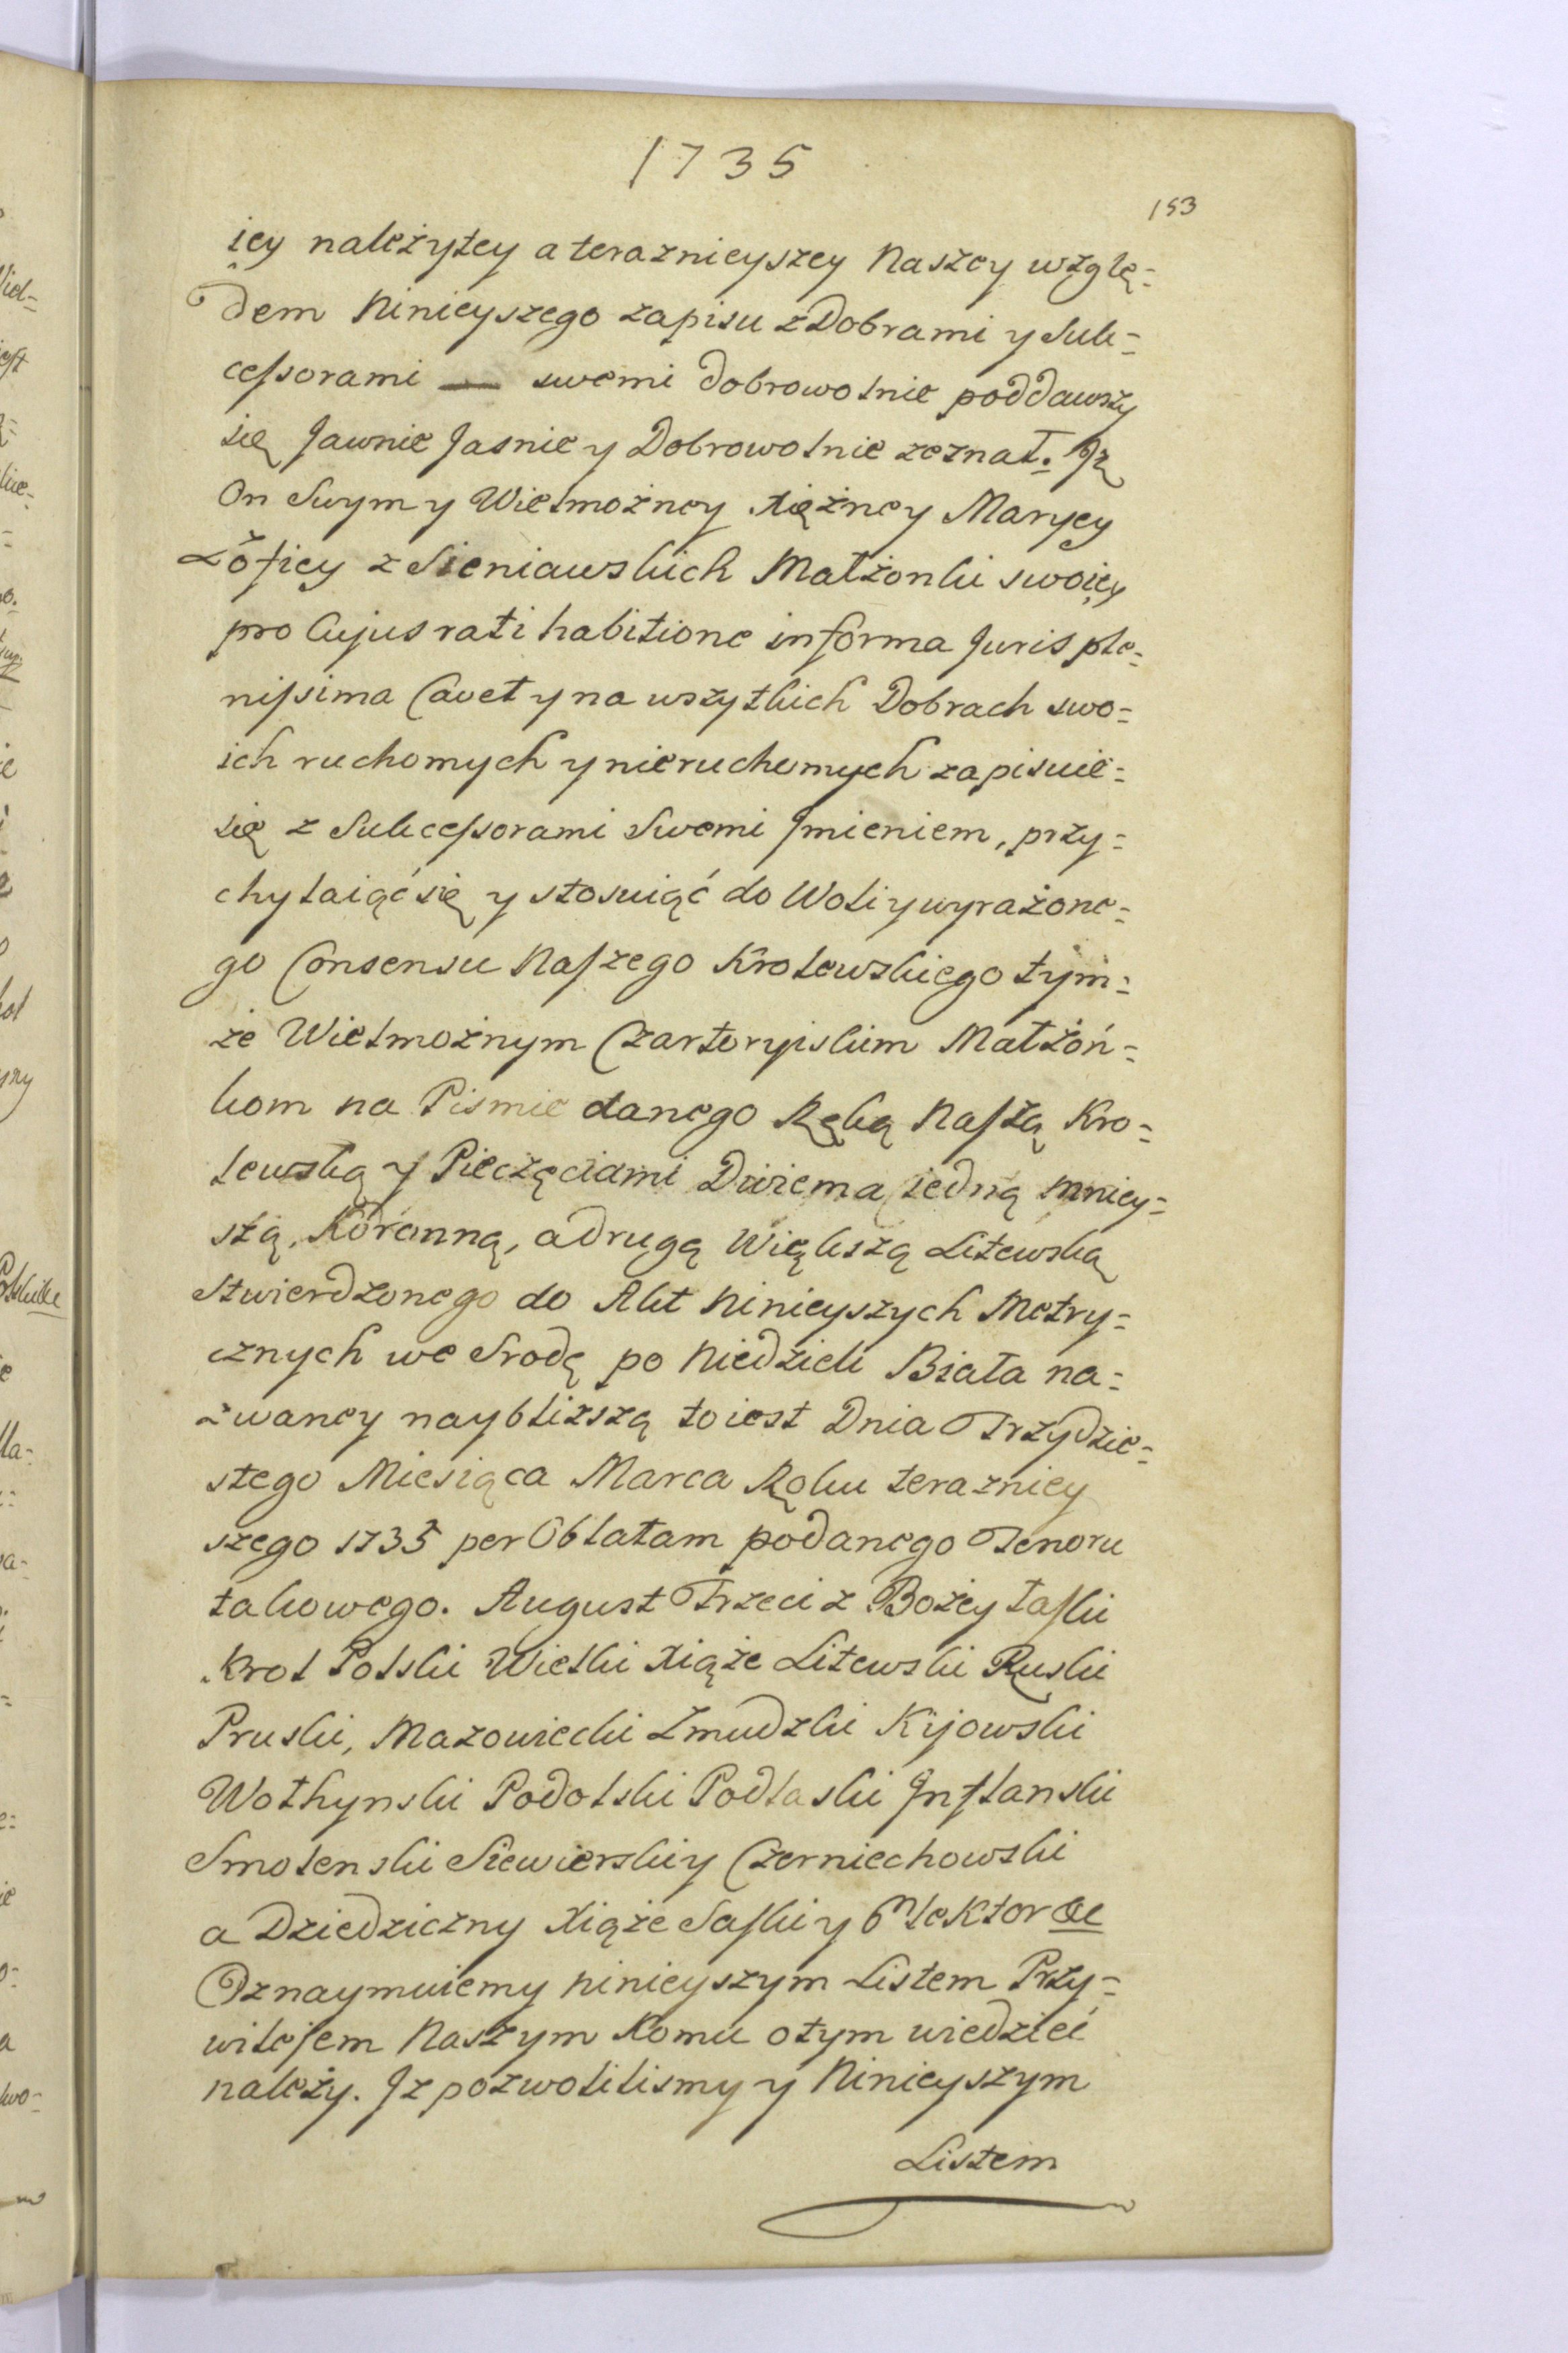 1735
153
iey należytey a teraznieyszey Naszey wzglę=
dem Ninieyszego zapisu z Dobrami y Suk=
cessorami — swemi dobrowolnie poddawszy
się Jawnie Jasnie y Dobrowolnie zeznał. Iż
On Swym y Wielmożney Xiężney Maryey
Zofiey z Sieniawskich Małżonki swoiey
pro Cujus rati habitione in forma Juris ple=
nissima Cavet y na wszytkich Dobrach swo=
ich ruchomych y nieruchomych zapisuie=
się z Sukcessorami Swemi Jmieniem, przy=
chylaiąć się y stosuiąć do Woli y wyrażone=
go Consensu Naszego Krolewskiego tym=
że Wielmożnym Czartoryiskim Małżoń=
kom na Pismie danego Ręką Naszą Kro=
lewską y Pieczęciami Dwiema, iedną mniey=
szą, Koronną, a drugą Większą Litewską
Stwierdzonego do Akt Ninieyszych Metry=
cznych we Srodę po Niedzieli Biała na=
zwaney naybliższą to iest Dnia Trzydzie=
stego Miesiąca Marca Roku teraźniey
szego 1735 per Oblatam podanego Tenoru
takowego. August Trzeci z Bożey łaski
Krol Polski Wielki Xiąże Litewski Ruski
Pruski, Mazowiecki Zmudzki Kijowski
Wołhynski Podolski Podlaski Jnflanski
Smolenski Siewierski y Czerniechowski
a Dziedziczny Xiąże Saski y Elektor &c
Oznaymuiemy ninieyszym Listem Przy=
wilejem Naszym Komu o tym wiedzieć
należy. Jz pozwolilismy y Ninieyszym
Listem